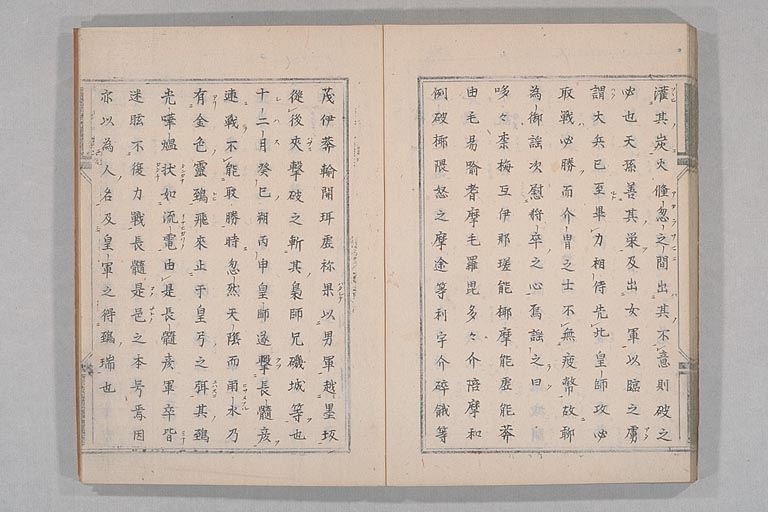 灌其炭火倏忽之間出其不意則破之
必也天孫善其策及出女軍以臨之虜
謂大兵已至畢力相待先此皇師攻必
取戰必勝而介胄之士不無疲弊故聊
為御謡次慰將卒之心焉謡之曰
哆々奈梅互伊那瑳能椰摩能虚能莽
由毛易喩耆摩毛羅毘多々介陪摩和
例破椰隈怒之摩途等利宇介碎餓等
茂伊莽輸開珥虚祢果以男軍越墨坂
從後夾擊破之斬其梟師兄磯城等也
十二月癸巳朔丙申皇師遂擊長髓彦
連戰不能取勝時忽然天陰而雨氷乃
有金色靈鵄飛來止于皇弓之弭其鵄
光曄煜状如流電由是長髓彦軍卒皆
迷眩不復力戰長髓是邑之本号焉因
亦以為人名及皇軍之得鵄瑞也